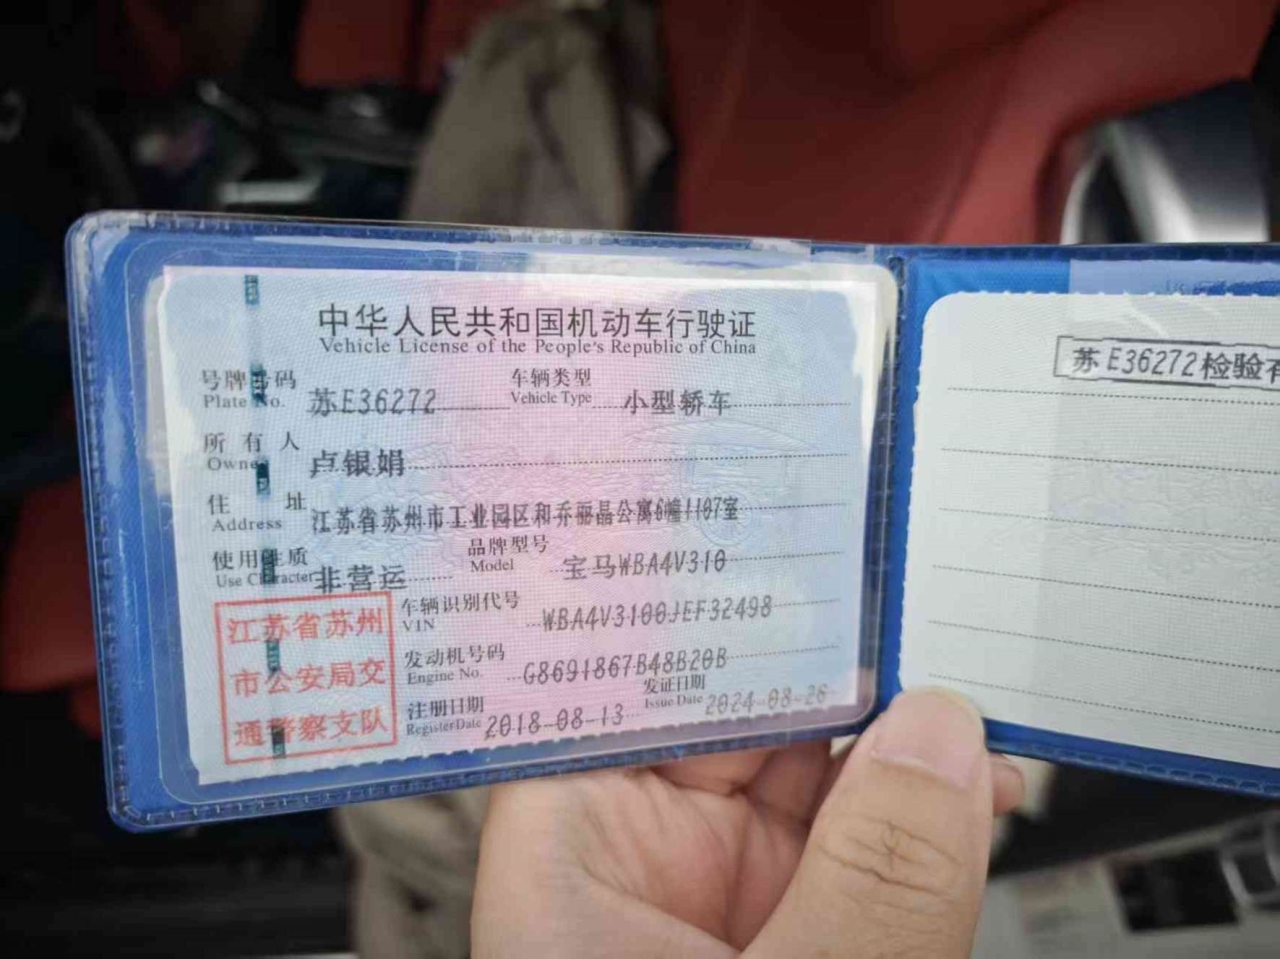 中华人民共和国机动车行驶证
Vehicle License of the People's Republic of China
号牌号码 苏E36272 车辆类型 小型轿车
Plate No. Vehicle Type
所有人 卢银娟
Owner
住址 江苏省苏州市工业园区和乔丽晶公寓6幢1107室
Address
使用性质 非营运 品牌型号 宝马WBA4V310
Use Character Model
车辆识别代号 WBA4V3100JEF32498
VIN
发动机号码 G8691867B48B20B
Engine No.
注册日期 2018-08-13 发证日期 2024-08-26
Register Date Issue Date
江苏省苏州
市公安局交
通警察支队
苏E36272检验有